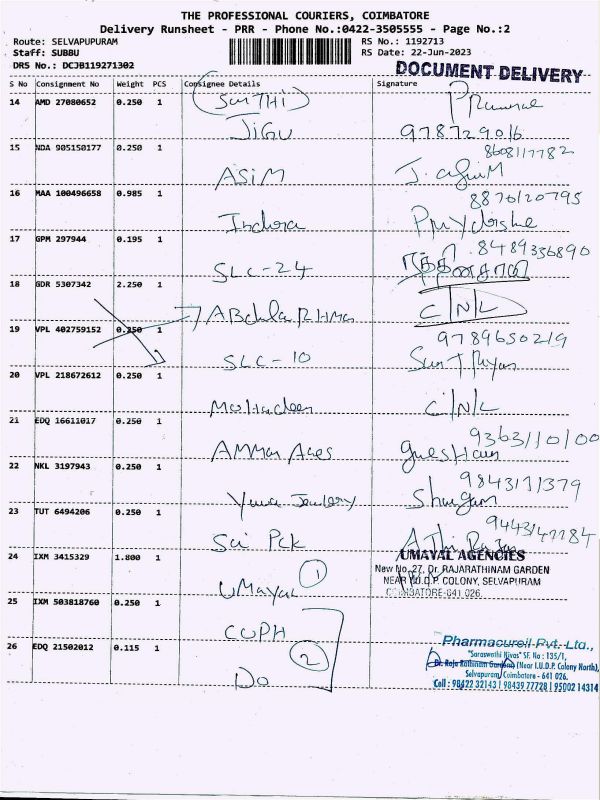 THE PROFESSIONAL COURIERS, COIMBATORE
Delivery Runsheet - PRR - Phone No.:0422-3505555 - Page No.:2
Route: SELVAPUPURAM RS No.: 1192713
Staff: SUBBU RS Date: 22-Jun-2023
DRS No.: DCJB119271302
DOCUMENT DELIVERY
S No Consignment No Weight PCS Consignee Details Signature
14 AMD 27080652 0.250 1
JIGU 978729016
15 NDA 905150177 0.250 1 8608117782
ASIM
16 MAA 100496658 0.985 1 8870120795
Indira
17 GPM 297944 0.195 1 8489336890
SLC-24
18 GDR 5307342 2.250 1
C/N/L
19 VPL 402759152 0.350 1 9789650219
SLC-10
20 VPL 218672612 0.250 1
C/N/L
21 EDQ 16611017 0.250 1 9363110100
22 NKL 3197943 0.250 1 9843171379
23 TUT 6494206 0.250 1
Sai Pck
24 IXM 3415329 1.800 1
UMAYAL AGENCIES
New No. 27, Dr. RAJARATHINAM GARDEN
NEAR I.U.D.P. COLONY, SELVAPURAM
COIMBATORE-641 026.
Umayal 1
25 IXM 503818760 0.250 1
CUPH
26 EDQ 21502012 0.115 1
Do 2
Pharmacureil Pvt. Ltd.,
"Saraswathi Nivas" SF. No : 135/1,
Dr. Raja Rathinam Gardens (Near I.U.D.P. Colony North),
Selvapuram, Coimbatore - 641 026.
Cell : 98422 32143 | 98439 77728 | 95002 14314